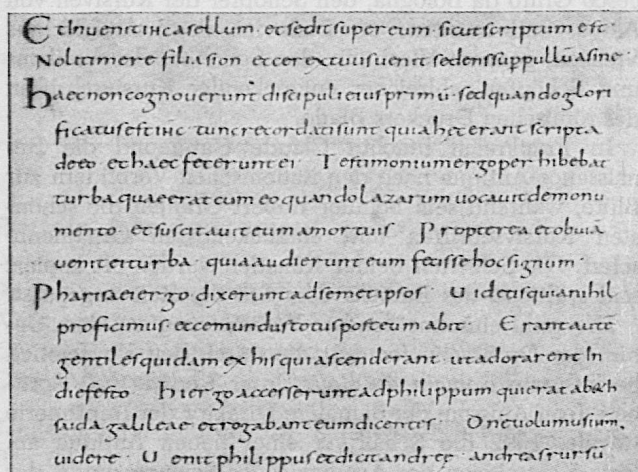 Et Inuenit ihc asellum · et sedit super eum · sicut scriptum est ·
Noli timere filia sion et ecce rex tuus uenit sedens sup pullū asine ·
haec non cognouerunt discipuli eius primū · sed quando glori
ficatus est ihc tunc recordati sunt quia hec erant scripta
de eo et haec fecerunt ei Testimonium ergo perhibebat
turba quae erat cum eo quando lazarum uocauit de monu
mento · et suscitauit eum a mortuis Propterea et obuia
uenit ei turba · quia audierunt eum fecisse hoc signum ·
Pharisaei ergo dixerunt ad semet ipsos · Uidetis quia nihil
proficimus ecce mundus totus post eum abit · Erant autē
gentiles quidam ex his qui ascenderant ut adorarent In
die festo hi ergo accesserunt ad philippum qui erat a beth
saida galilaeae et rogabant eum dicentes · Dnē uolumus ihm
uidere · Uenit philippus et dicit andreę andreas rursū